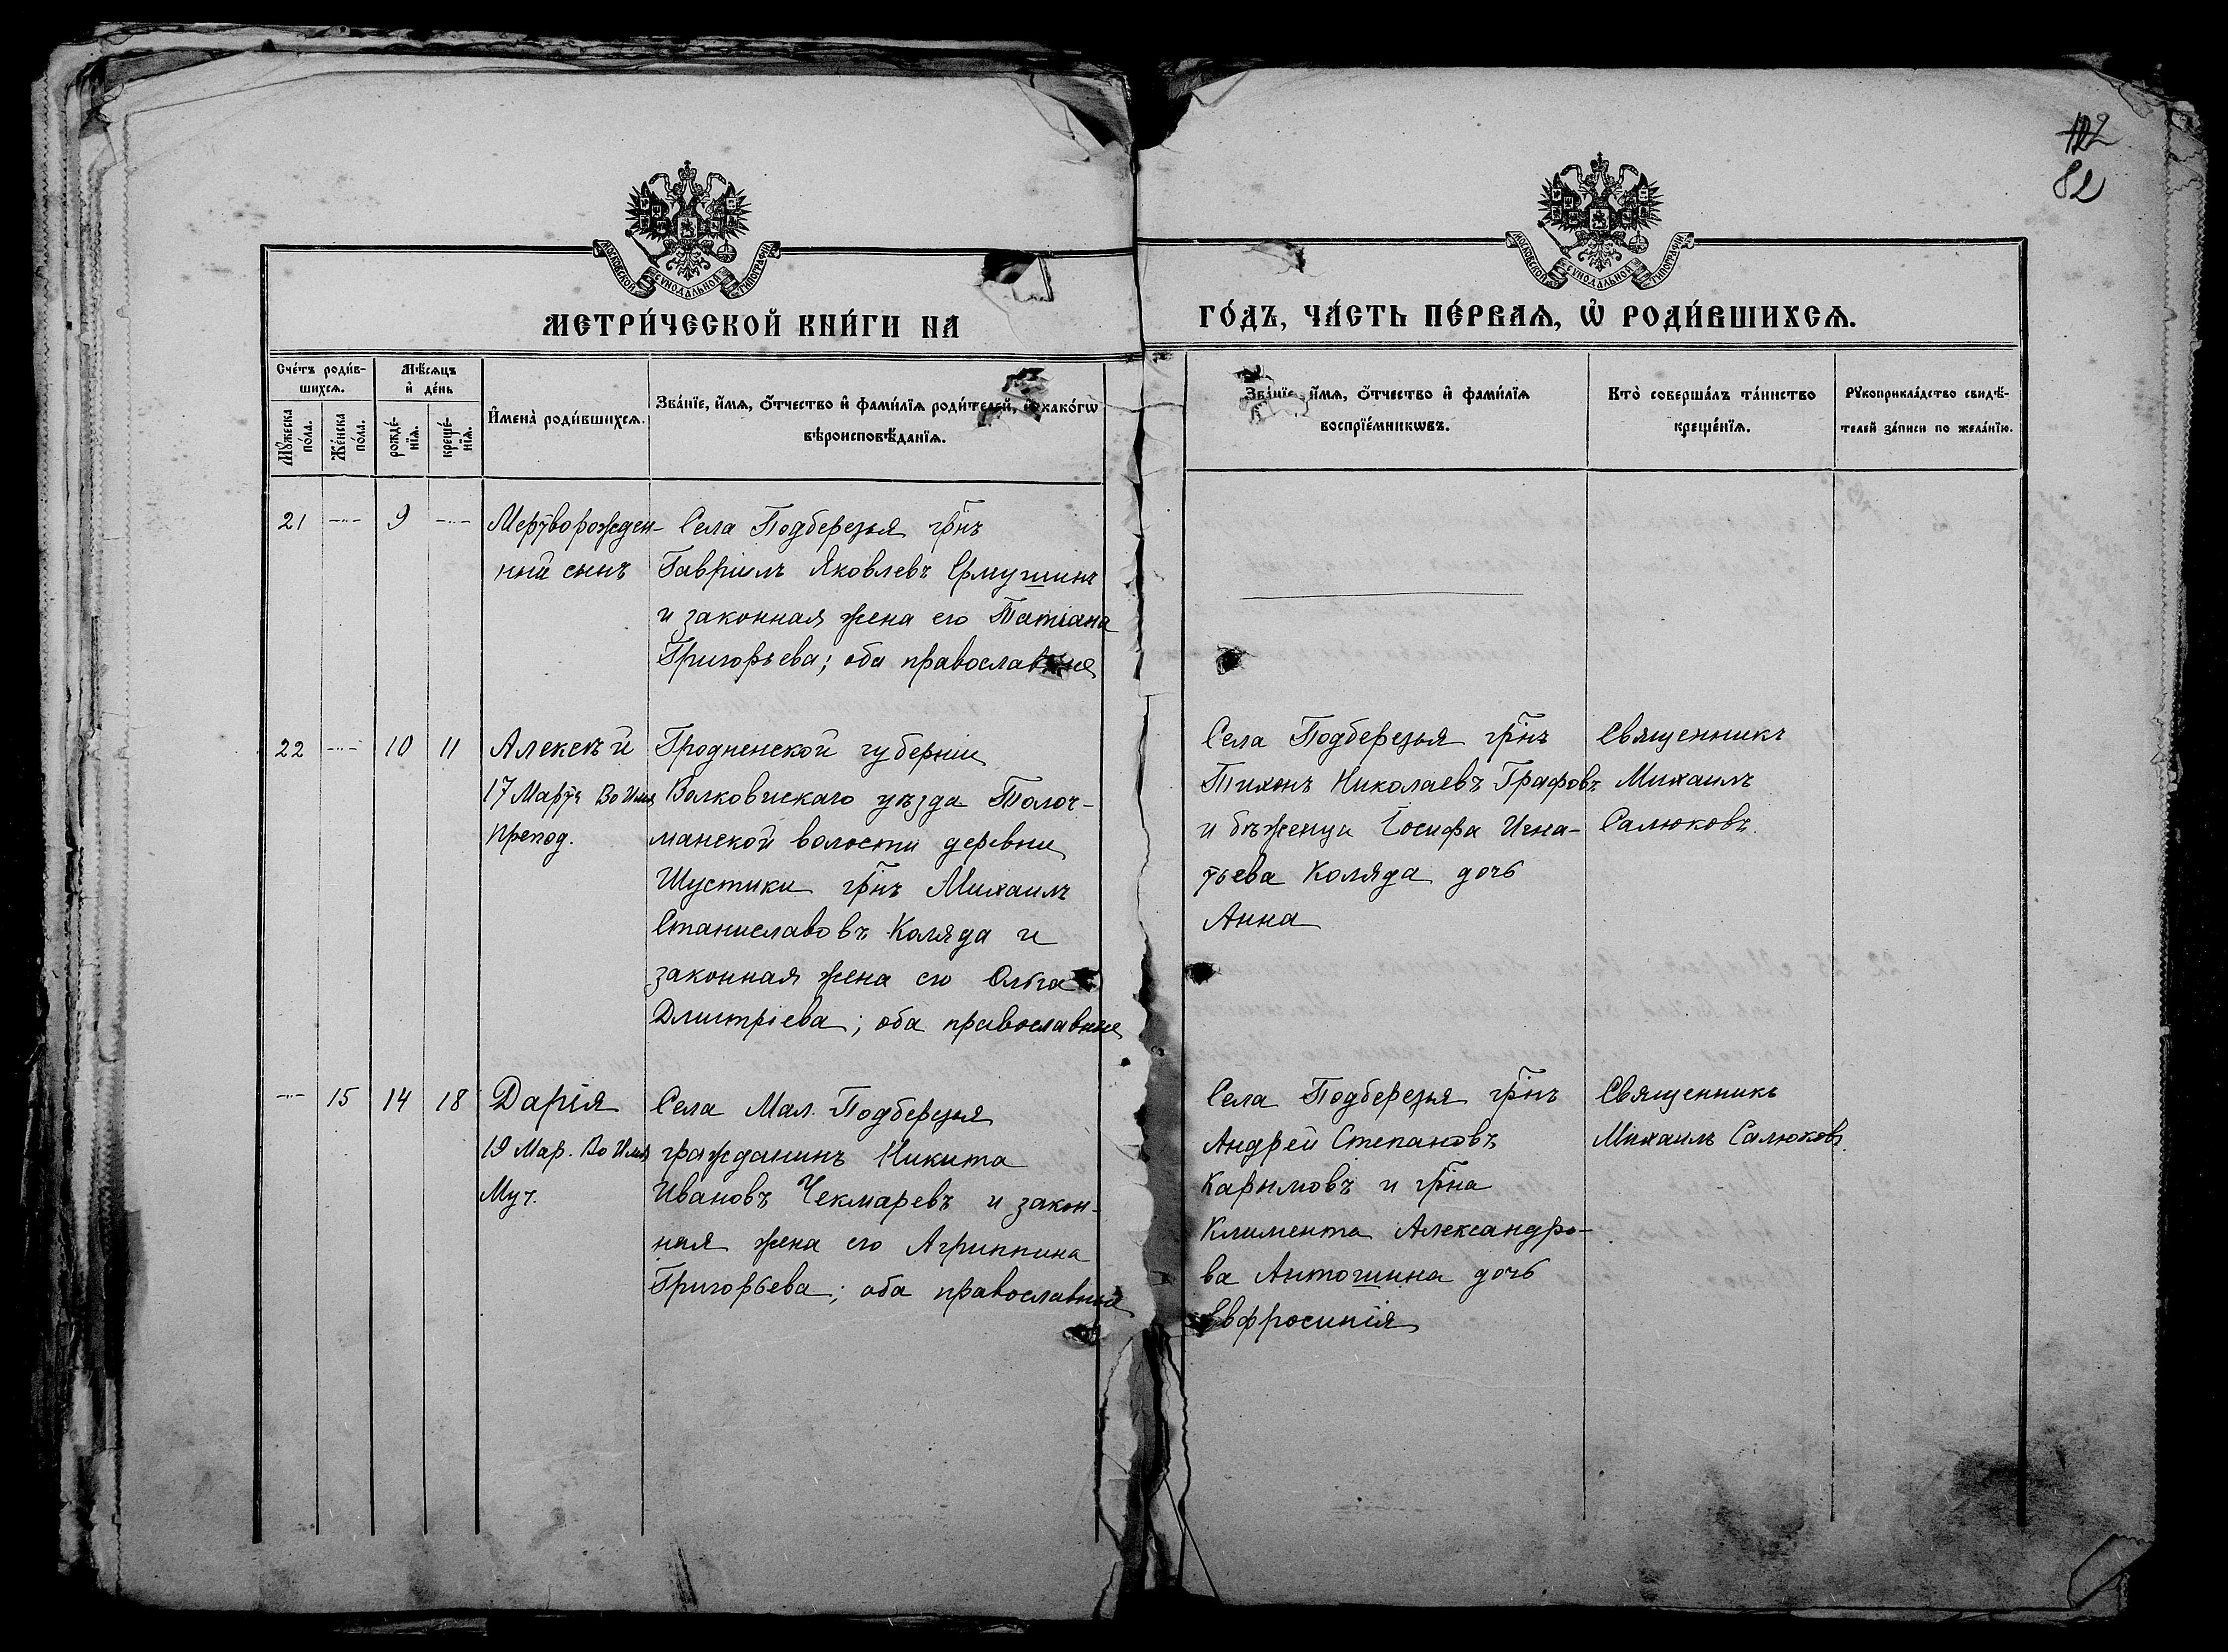 122
82
МОСКОВСКОЙ СѴНОДАЛЬНОЙ ТИПОГРАФІИ
МОСКОВСКОЙ СѴНОДАЛЬНОЙ ТИПОГРАФІИ
МЕТРИ́ЧЕСКОЙ КНИ́ГИ НА
ГО́ДЪ, ЧА́СТЬ ПЕ́РВАѦ, Ѽ РОДИ́ВШИХСѦ.
Сче́тъ роди́в-
шихсѧ.
Мѣ́сѧцъ
и҆ де́нь
Мꙋ́жеска
по́ла.
Же́нска
по́ла.
рожде́-
нїѧ.
креще́-
нїѧ.
И҆мена̀ роди́вшихсѧ.
Зва́нїе, и҆́мѧ, ѻ҆́тчество и҆ фами́лїѧ роди́телей, и҆ какогѡ
вѣроисповѣ́данїѧ.
Зва́нїе, и҆́мѧ, ѻ҆́тчество и҆ фами́лїѧ
воспрїе́мникѡвъ.
Кто̀ соверша́лъ та́инство
креще́нїѧ.
Рꙋкоприкла́дство свидѣ́-
телей за́писи по жела́нїю.
21 -"- 9 -"- Мертворожден-
ный сынъ
Села Подберезья гр̄нъ
Гавріилъ Яковлевъ Ермушинъ
и законная жена его Татіана
Григорьева; оба православные
22 -"- 10 11 Алексѣй
17 Марта Во Имя
препод.
Гродненской губерніи
Волковискаго уѣзда Толоч-
манской волости деревни
Шустики гр̄нъ Михаилъ
Станиславовъ Коляда и
законная жена его Ольга
Дмитріева; оба православные
Села Подберезья гр̄нъ
Тихонъ Николаевъ Графовъ
и бѣженца Іосифа Игна-
тьева Коляда дочь
Анна
Священникъ
Михаилъ
Салюковъ.
-"- 15 14 18 Дарія
19 Мар. Во Имя
Муч.
Села Мал. Подберезья
гражданинъ Никита
Ивановъ Чекмаревъ и закон-
ная жена его Агриппина
Григорьева; оба православные
Села Подберезья гр̄нъ
Андрей Степановъ
Карымовъ и гр̄на
Климента Александро-
ва Антошина дочь
Евфросинія
Священникъ
Михаилъ Салюковъ.